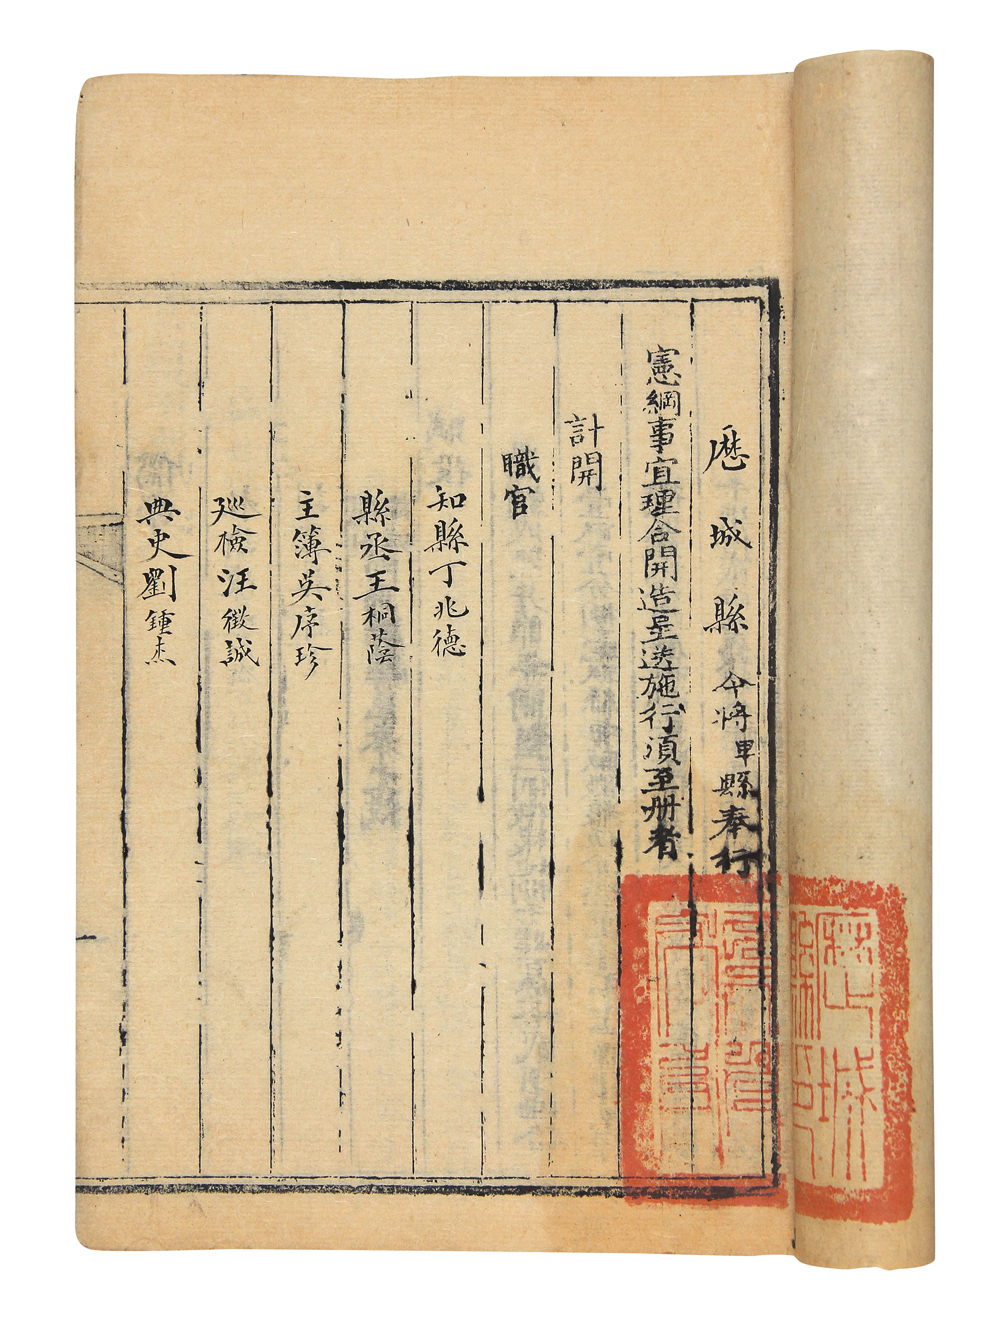 歷城縣今將卑縣奉行
憲綱事宜理合開造呈送施行須至册者
計開
職官
知縣丁兆德
縣丞王桐蔭
主簿吳序珍
廵檢汪徵誠
典史劉鍾杰
歷城
縣印